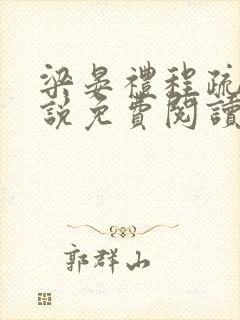 梁晏禮程疏
說免費閱讀
郭群山